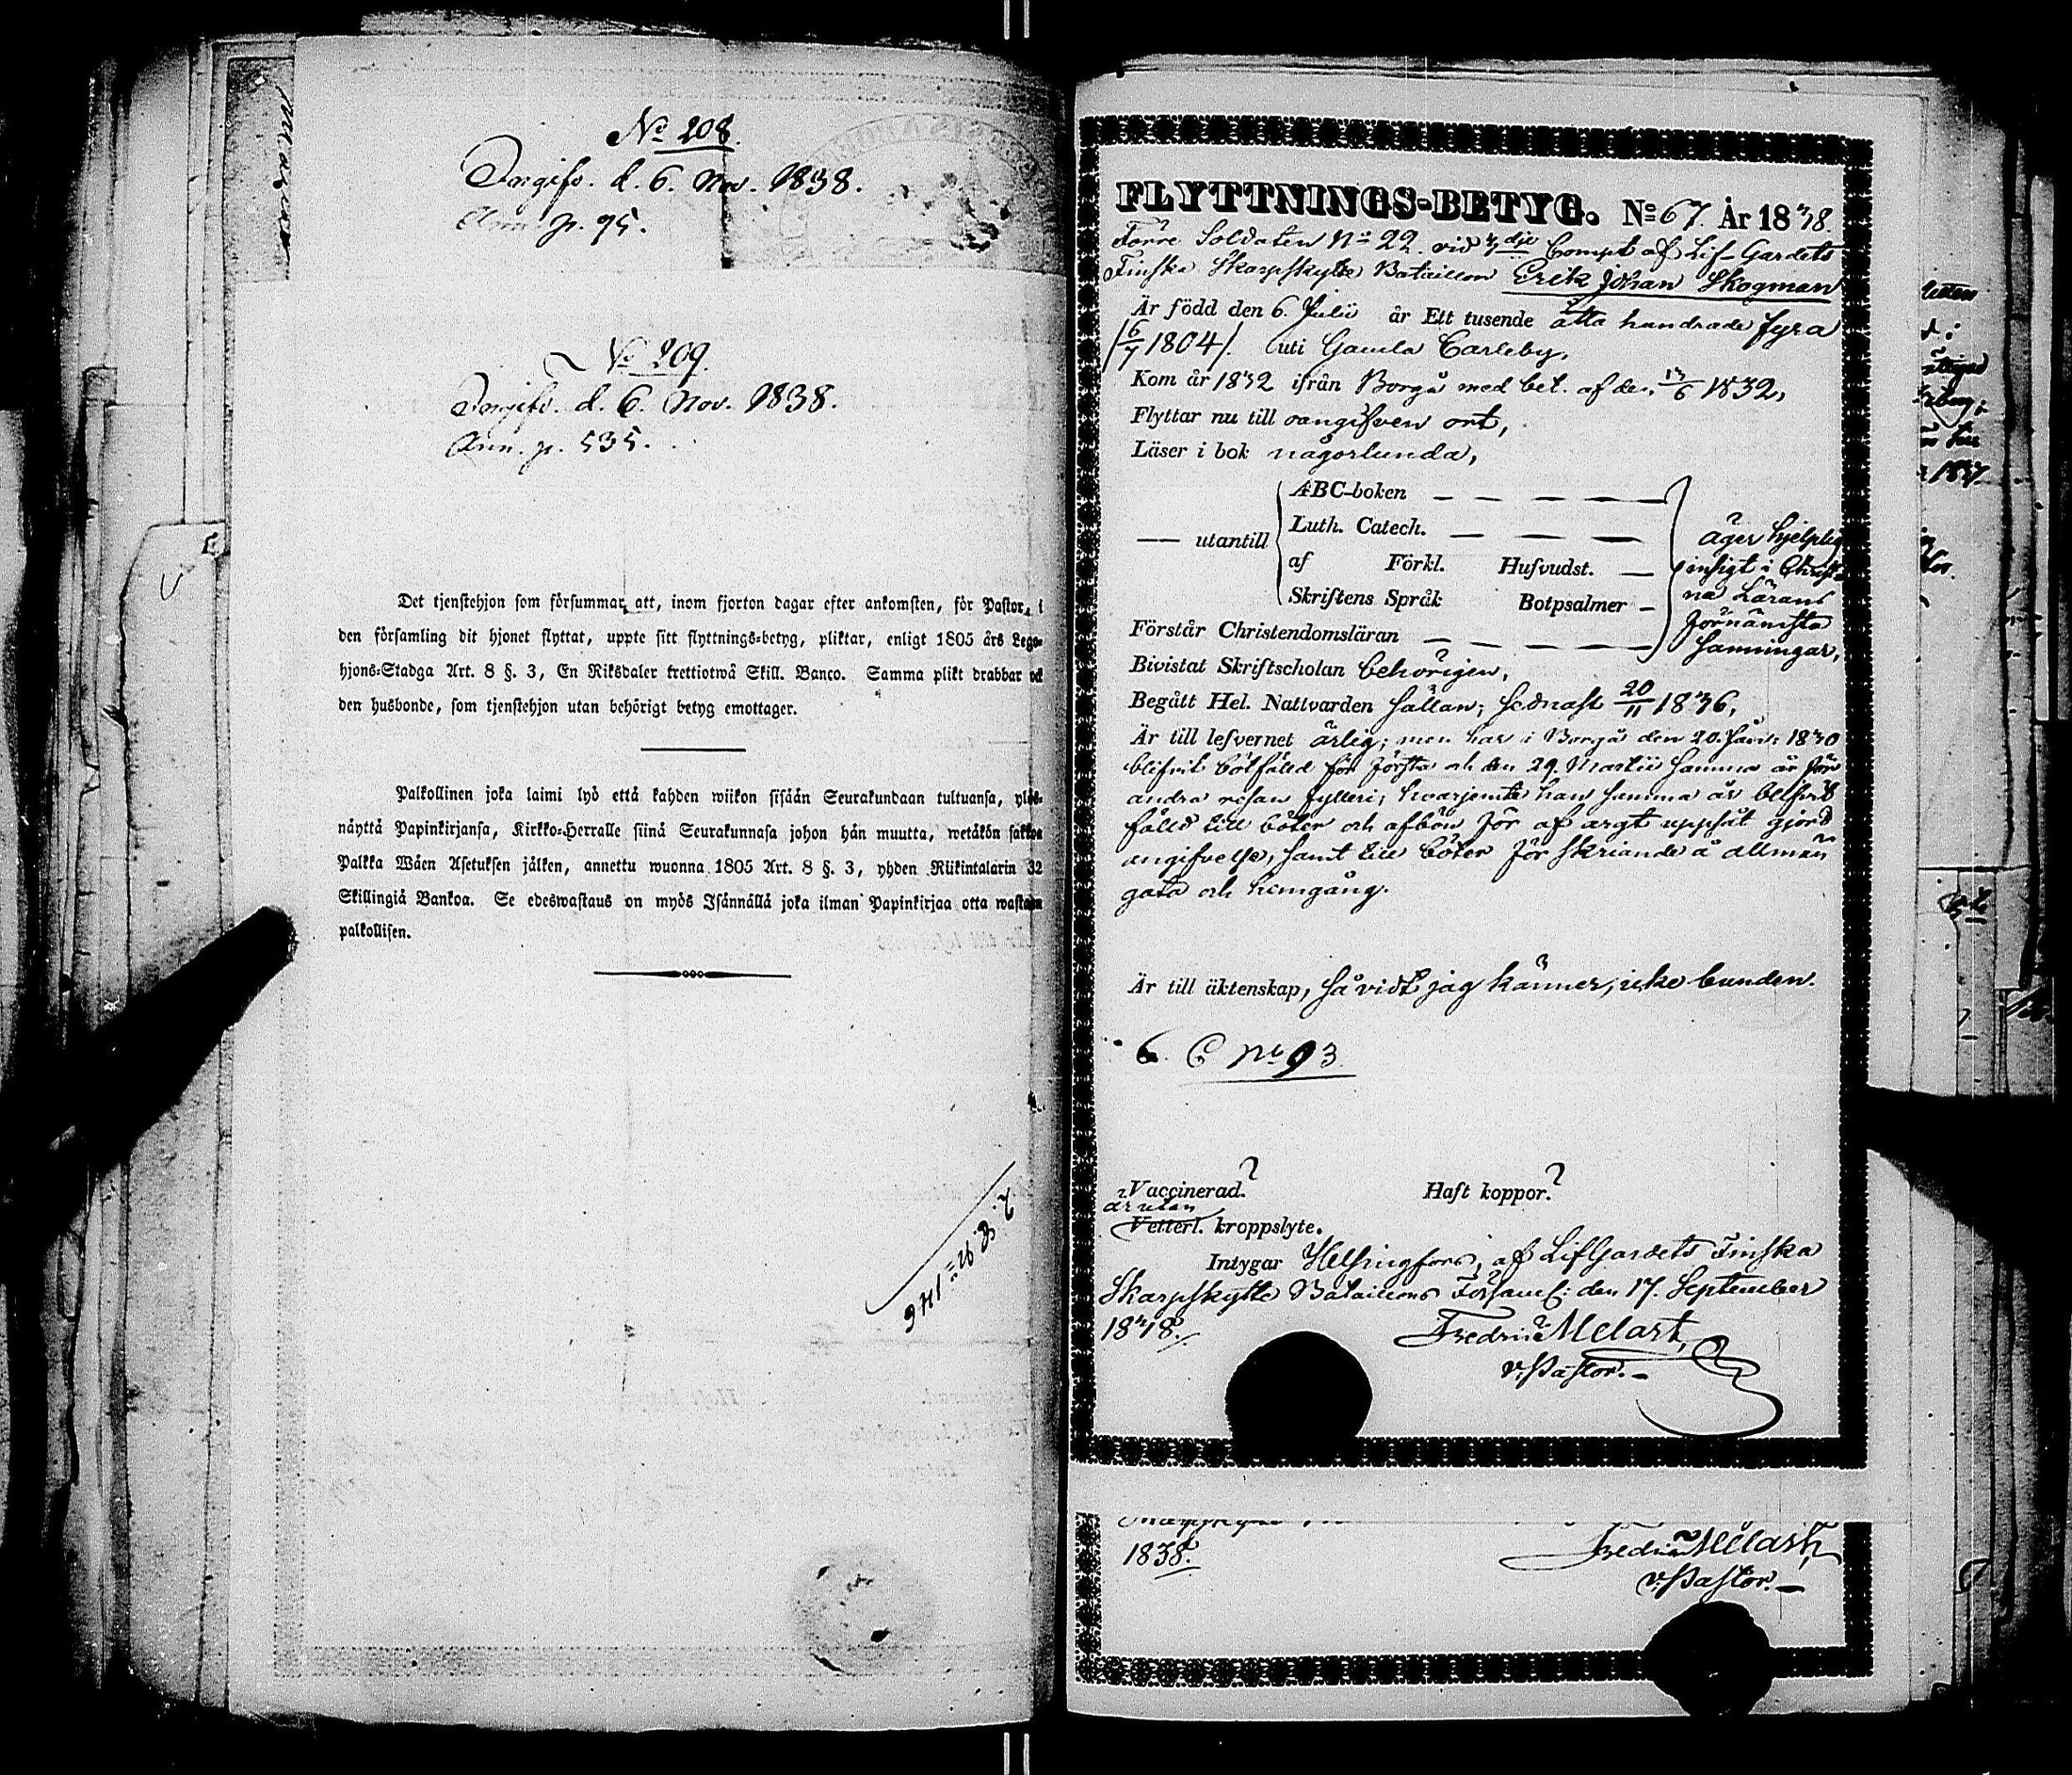 No 208.
Ingifv. d. 6. Nov. 1838.
Ann. p. 95.
No 209.
Ingifv. d. 6. Nov. 1838.
Ann. p. 535.
Det tjenstehjon som försummar att, inom fjorton dagar efter ankomsten, för Pastor i
den församling dit hjonet flyttat, uppte sitt flyttnings-betyg, pliktar, enligt 1805 års Lego-
hjons-Stadga Art. 8 §. 3, En Riksdaler trettiotwå Skill. Banco. Samma plikt drabbar ock
den husbonde, som tjenstehjon utan behörigt betyg emottager.
Palkollinen joka laimi lyö että kahden wiikon sisään Seurakundaan tultuansa, ylös-
näyttä Papinkirjansa, Kirkko-Herralle siinä Seurakunnasa johon hän muutta, wetäkön sakkoa
Palkka Wäen Asetuksen jälken, annettu wuonna 1805 Art. 8 §. 3, yhden Riikintalarin 32
Skillingiä Bankoa. Se edeswastaus on myös Isännällä joka ilman Papinkirjaa otta wastaan
palkollisen.
FLYTTNINGS-BETYG. No 67. År 1838.
Förre Soldaten No 22 vid 4/dje Compt af Lif-Gardets
Finska Skarpskytte Bataillon Erik Johan Skogman
Är född den 6. Julii år Ett tusende åtta hundrade fyra
/6/7 1804/. uti Gamla Carleby,
Kom år 1832 ifrån Borgå med bet. af den 13/6 1832,
Flyttar nu till oangifven ort,
Läser i bok någorlunda,
ABC-boken
Luth. Catech.
— utantill
af Förkl. Husvudst.
Skriftens Språk Botpsalmer
Förstår Christendomsläran
äger hjelplig
insigt i Christ-
na Lärans
förnämsta
sanningar,
Bivistat Skriftscholan behörigen,
Begått Hel. Nattvarden sällan; sednast 20/11 1836,
Är till lefvernet ärlig; men har i Borgå den 20. Janv: 1830
blifvit bötfälld för första och den 29. Martii samma år för
andra resan fylleri; hvarjemte han samma år blifvit
fälld till böter och afbön för af argt uppsåt gjord
angifvelse, samt till böter för skriande å allmän
gata och hemgång.
Är till äktenskap, så vidt jag känner, icke bunden.
6. C No 93
Vaccinerad? Haft koppor?
är utan
Vetterl. kroppslyte.
Intygar Helsingfors, af LifGardets Finska
Skarpskytte Bataillons Församl: den 17. September
1838.
Fredric Melart,
v. Pastor.
1838.
Fredric Melart,
v. Pastor.